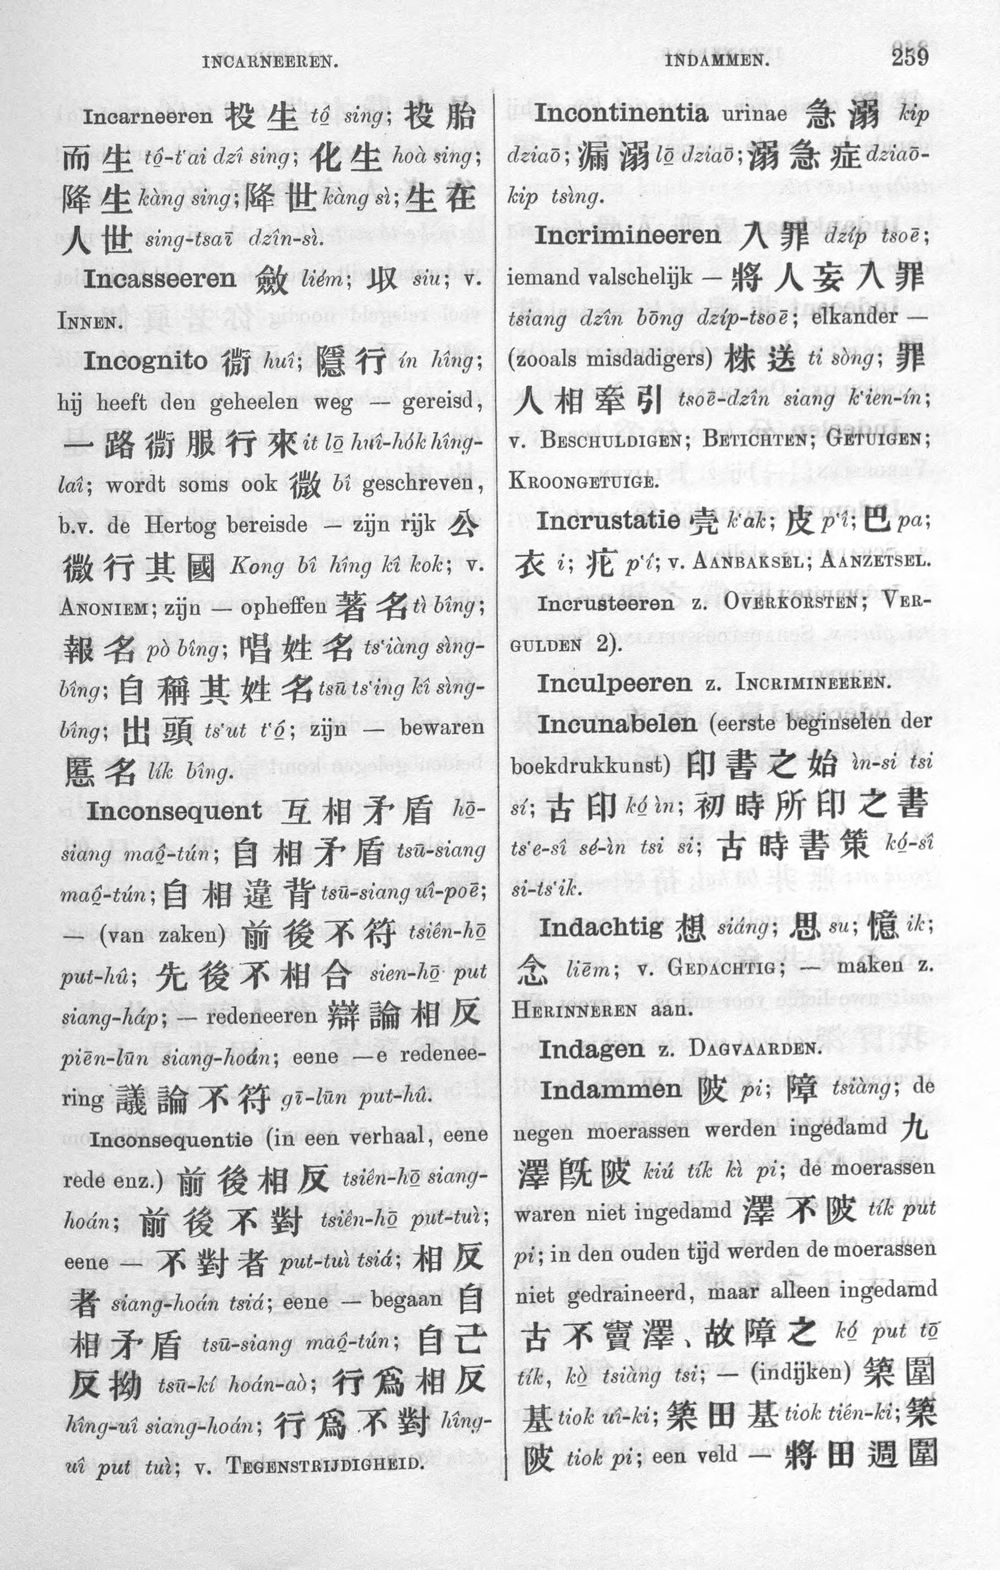 INCARNEEREN. INDAMMEN. 259
Incarneeren 投生 tô̤ sing; 投胎
而生 tô̤-t‘ai dzî sing; 化生 hoà sing;
降生 kàng sing; 降世 kàng sì; 生在
人世 sing-tsaī dzîn-sì.
Incasseeren 斂 liém; 収 siu; v.
INNEN.
Incognito 衜 huî; 隱行 ín hîng;
hij heeft den geheelen weg — gereisd,
一路衜服行來 it lō̤ huî-hók hîng-
laî; wordt soms ook 微 bî geschreven,
b.v. de Hertog bereisde — zijn rijk 公
微行其國 Kong bî hîng kî kok; v.
ANONIEM; zijn — opheffen 著名 tì bîng;
報名 pò bîng; 唱姓名 ts‘iàng sìng-
bîng; 自稱其姓名 tsū ts‘ing kî sìng-
bîng; 出頭 ts‘ut t‘ô̤; zijn — bewaren
匿名 lík bîng.
Inconsequent 互相矛盾 hō̤-
siang maô̤-tún; 自相矛盾 tsū-siang
maô̤-tún; 自相違背 tsū-siang uî-poē;
— (van zaken) 前後不符 tsiên-hō̤
put-hû; 先後不相合 sien-hō̤ put
siang-háp; — redeneeren 辯論相反
piēn-lūn siang-hoán; eene —e redenee-
ring 議論不符 gī-lūn put-hû.
Inconsequentie (in een verhaal, eene
rede enz.) 前後相反 tsiên-hō̤ siang-
hoán; 前後不對 tsiên-hō̤ put-tuì;
eene — 不對者 put-tuì tsiá; 相反
者 siang-hoán tsiá; eene — begaan 自
相矛盾 tsū-siang maô̤-tún; 自己
反拗 tsū-kí hoán-aò; 行爲相反
hîng-uî siang-hoán; 行爲不對 hîng-
uî put tuì; v. TEGENSTRIJDIGHEID.
Incontinentia urinae 急溺 kip
dziaō; 漏溺 lō̤ dziaō; 溺急症 dziaō-
kip tsìng.
Incrimineeren 入罪 dzíp tsoē;
iemand valschelijk — 將人妄入罪
tsiang dzîn bōng dzíp-tsoē; elkander —
(zooals misdadigers) 株送 ti sòng; 罪
人相牽引 tsoē-dzîn siang k‘ien-ín;
v. BESCHULDIGEN; BETICHTEN; GETUIGEN;
KROONGETUIGE.
Incrustatie 壳 k‘ak; 皮 p‘î; 巴 pa;
衣 i; 疕 p‘í; v. AANBAKSEL; AANZETSEL.
Incrusteeren z. OVERKORSTEN; VER-
GULDEN 2).
Inculpeeren z. INCRIMINEEREN.
Incunabelen (eerste beginselen der
boekdrukkunst) 印書之始 ìn-si tsi
sí; 古印 kó̤ ìn; 初時所印之書
ts‘e-sî sé-ìn tsi si; 古時書策 kó̤-sî
si-ts‘ik.
Indachtig 想 siáng; 思 su; 憶 ik;
念 liēm; v. GEDACHTIG; — maken z.
HERINNEREN aan.
Indagen z. DAGVAARDEN.
Indammen 陂 pi; 障 tsiàng; de
negen moerassen werden ingedamd 九
澤旣陂 kiú tík kì pi; de moerassen
waren niet ingedamd 澤不陂 tík put
pi; in den ouden tijd werden de moerassen
niet gedraineerd, maar alleen ingedamd
古不竇澤、故障之 kó̤ put tō̤
tík, kò̤ tsiàng tsi; — (indijken) 築圍
基 tiok uî-ki; 築田基 tiok tién-ki; 築
陂 tiok pi; een veld — 將田週圍